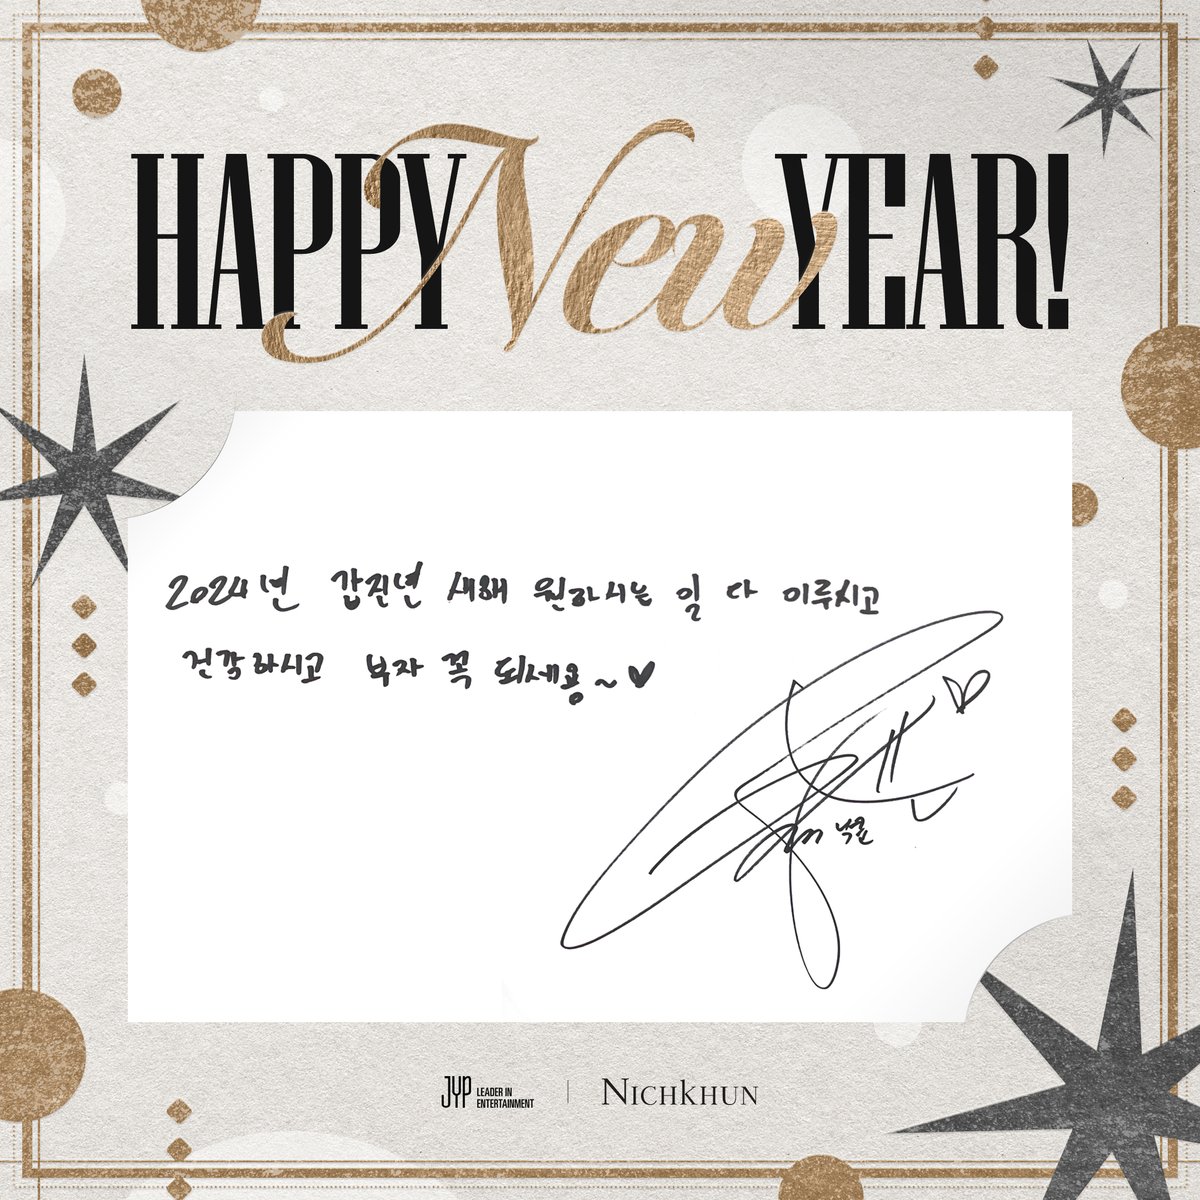 HAPPY New YEAR!
2024년 갑진년 새해 원하시는 일 다 이루시고
건강하시고 부자 꼭 되세용~♥
닉쿤
JYP LEADER IN
ENTERTAINMENT
NICHKHUN